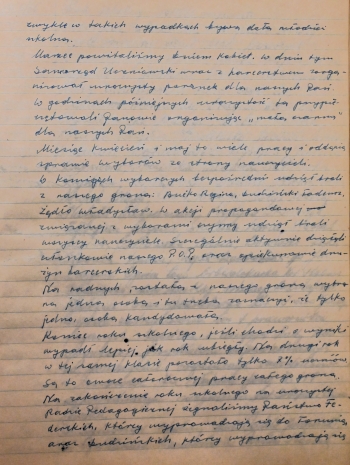 zwykle w takich wypadkach bywa dała młodzież
szkolna.
Marzec powitaliśmy Dniem Kobiet. W dniu tym
Samorząd Uczniowski wraz z harcerstwem zorga-
nizował uroczysty poranek dla naszych Pań
W godzinach późniejszych uroczystość tą przypie-
czętowali Panowie organizując „małą czarną”
dla naszych Pań.
Miesiąc kwiecień i maj to wiele pracy i oddania
sprawie wyborów ze strony nauczycieli.
W Komisjach wyborczych bezpośredni udział brali
z naszego grona: Regina, Tadeusz,
Władysław. W akcji propagandowej
związanej z wyborami czynny udział brali
wszyscy nauczyciele, szczególnie aktywnie działali
członkowie naszego P.O.P. oraz opiekunowie dru-
żyn harcerskich.
Na radnych, została z naszego grona wybra-
na jedna osoba i tu trzeba zaznaczyć, że tylko
jedna osoba kandydowała.
Koniec roku szkolnego, jeśli chodzi o wyniki
wypadł lepiej, jak rok ubiegły. Na drugi rok
w tej samej klasie pozostało tylko 8% uczniów
Są to owoce całorocznej pracy całego grona.
Na zakończenie roku szkolnego na uroczystej
Radzie Pedagogicznej żegnaliśmy Państwa
którzy wyprowadzają się do Torunia,
oraz którzy wyprowadzają się